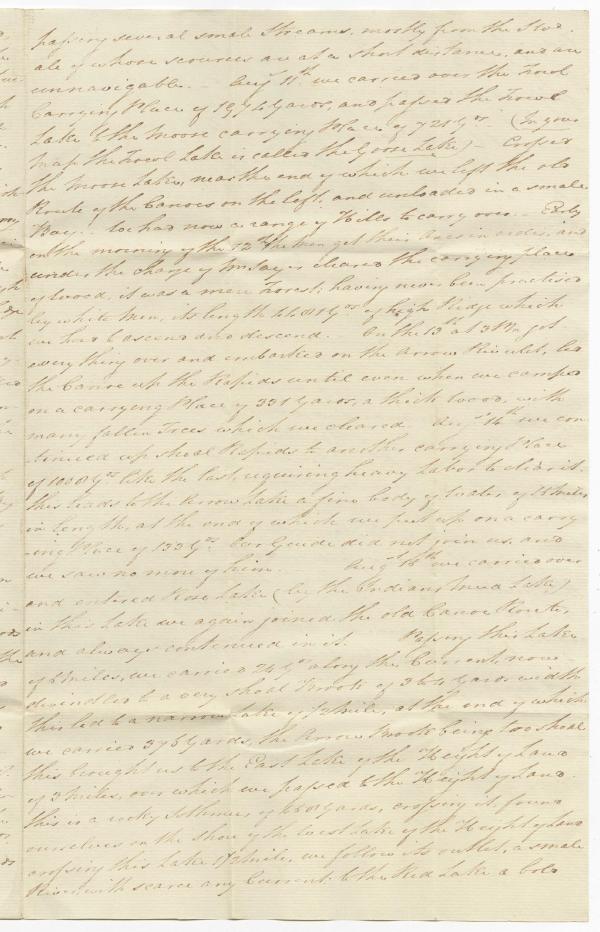 passing several small Streams, mostly from the
ale of whose sources are at a short distance, and are
unnavigable. – Augt 11th we carried over the Fowl
Carrying Place of 1974 Yards, and passed the Fowl
Lake to the Moose carrying Place of 721 Yds (In your
map the Fowl Lake is called the Goose Lake) – Crossed
the Moose Lake, near the end of which we left the old
Route of the Canoes on the left, and unloaded in a small
Bay. we had now a range of Hills to carry over. – Early
on the morning of the 12th the men got their Axes in order, and
under the charge of Mr Sayer cleared the carrying place
of wood, it was a mere Forest, having never been practised
by white Men, its length Yds of high Ridge which
we had to ascend and descend. On the 13th at 3 PM got
everything over and embarked on the Arrow Rivulet, led
the Canoe up the Rapids until even when we camped
on a carrying Place of 331 Yards, a thick wood, with
many fallen Trees which we cleared. Augt 14th we con
tinued up shoal Rapids to another carrying Place
of Yds like the last, requiring heavy Labor to clear it.
this leads to the Arrow Lake a fine body of water of miles
in length, at the end of which we put up on a carry
ing Place of 133 Yds Our Guide did not join us, and
we saw no more of him. Augt we carried over
and entered Rose Lake (by the Indians Mud Lake)
in this Lake we again joined the old Canoe Route,
and always continued in it. Passing this Lake
of miles, we carried 24 Yds along the Current, now
dwindled to a very shoal Brook of 3 to 4 Yards width
this led to a narrow Lake of miles, at the end of which
we carried Yards, the Arrow Brook being too shoal
this brought us to the East Lake of the Height of Land
of 3 miles, over which we passed to the Height of Land.
this is a rocky Isthmus of Yards, crossing it found
ourselves on the shore of the West Lake of the Height of Land
crossing this Lake mile, we follow its outlet, a small
River with scarce any Current to the Red Lake a bold